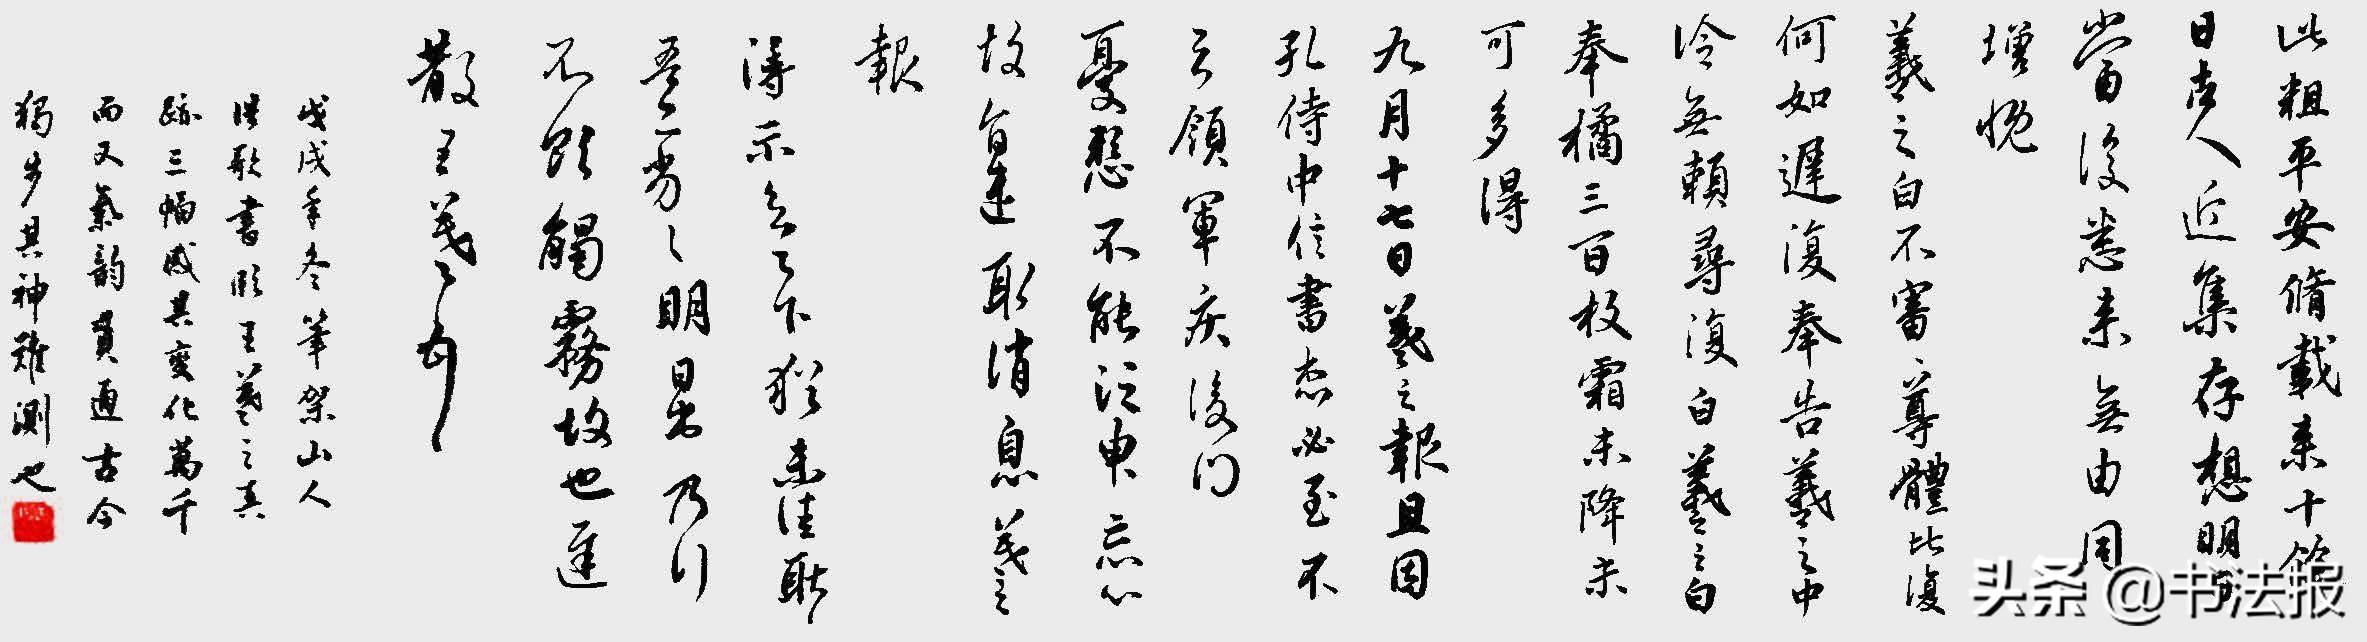 此粗平安脩載来十餘
日諸人近集存想明日
當復悉来無由同
增慨
羲之白不審尊體比復
何如遲復奉告羲之中
冷無賴尋復白羲之白
奉橘三百枚霜未降未
可多得
九月十七日羲之報且因
孔侍中信書想必至不
知領軍疾後問
憂懸不能須臾忘心
故旨遣取消息羲之
報
得示知足下猶未佳耿耿
吾亦劣劣明日出乃行
不欲觸霧故也遲
散王羲之
戊戌年冬筆架山人
洪歌書臨王羲之真
跡三幅感其變化萬千
而又氣韵貫通古今
獨步其神難測也
头条 @书法报